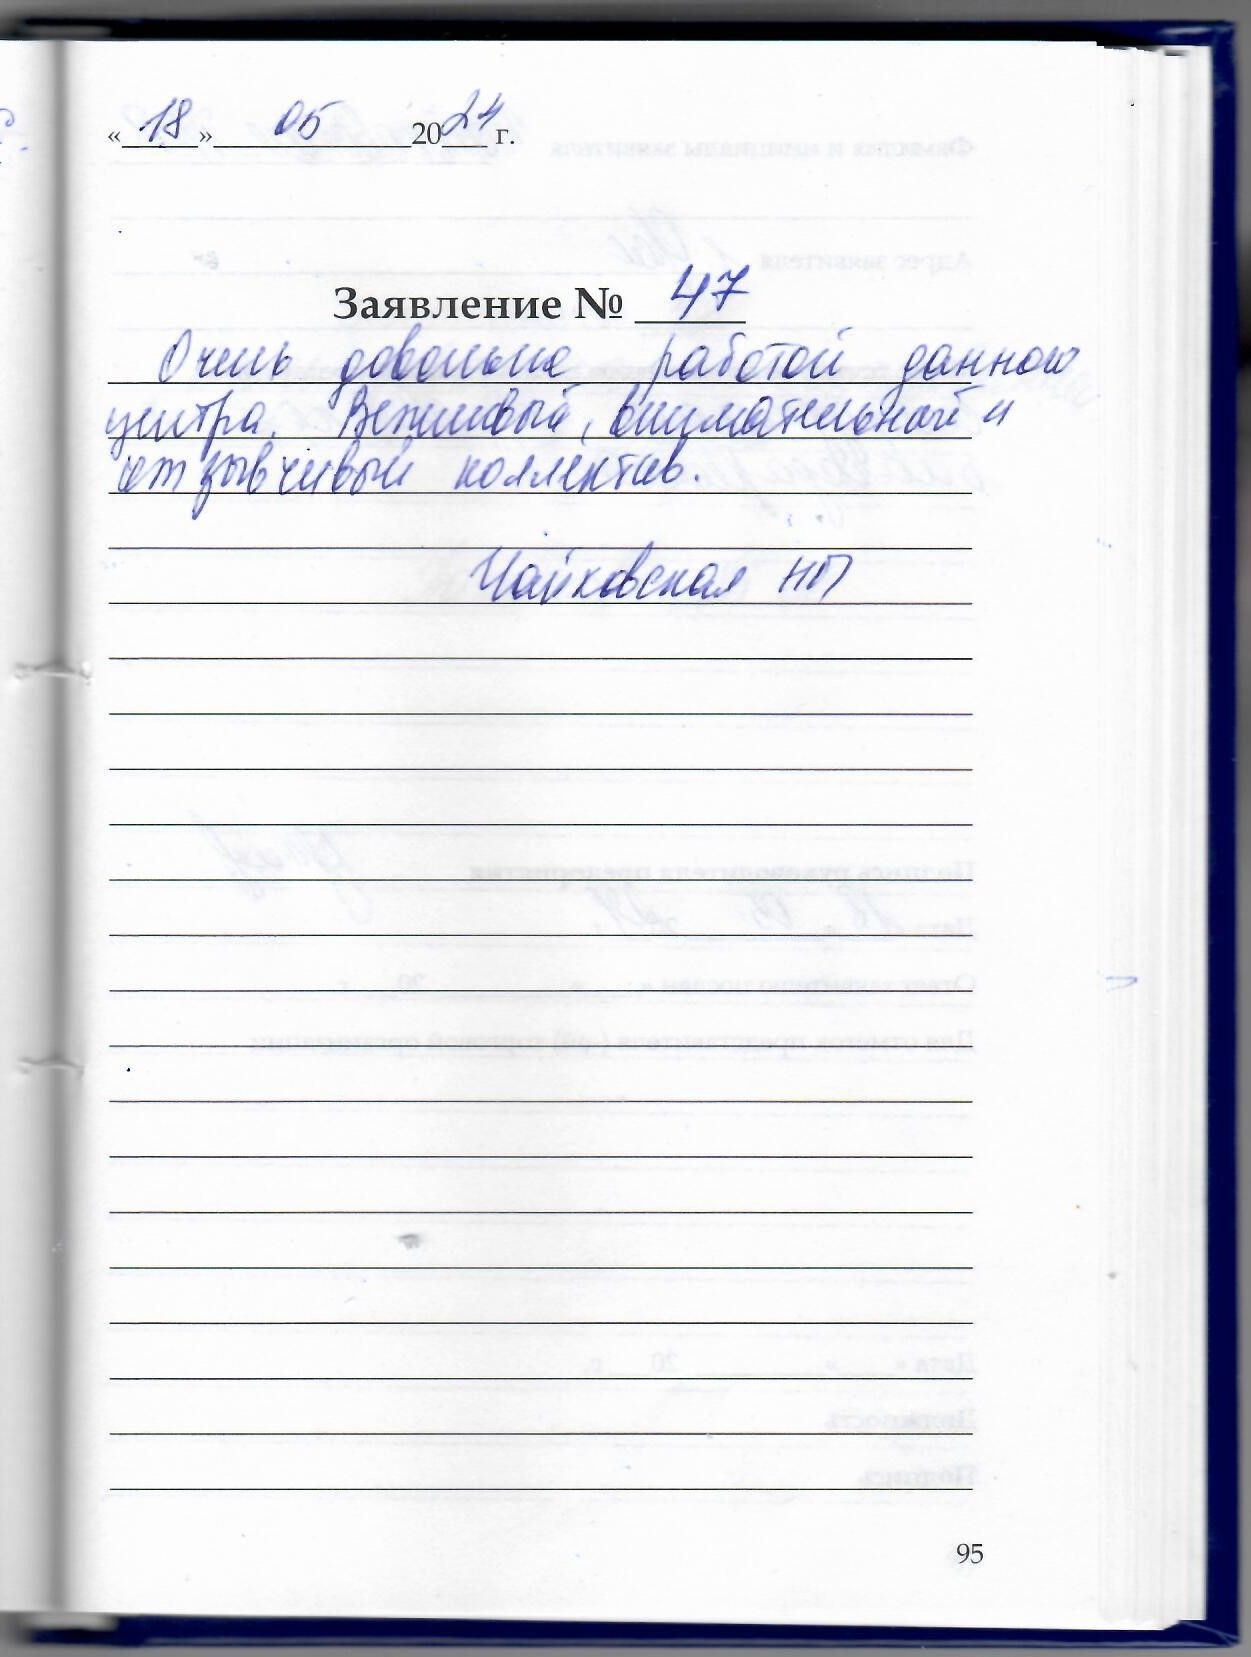 «18» 05 2024 г.
Заявление № 47
Очень довольна работой данного
центра. Вежливый, внимательный и
отзывчивый коллектив.
Чайковская НП
95